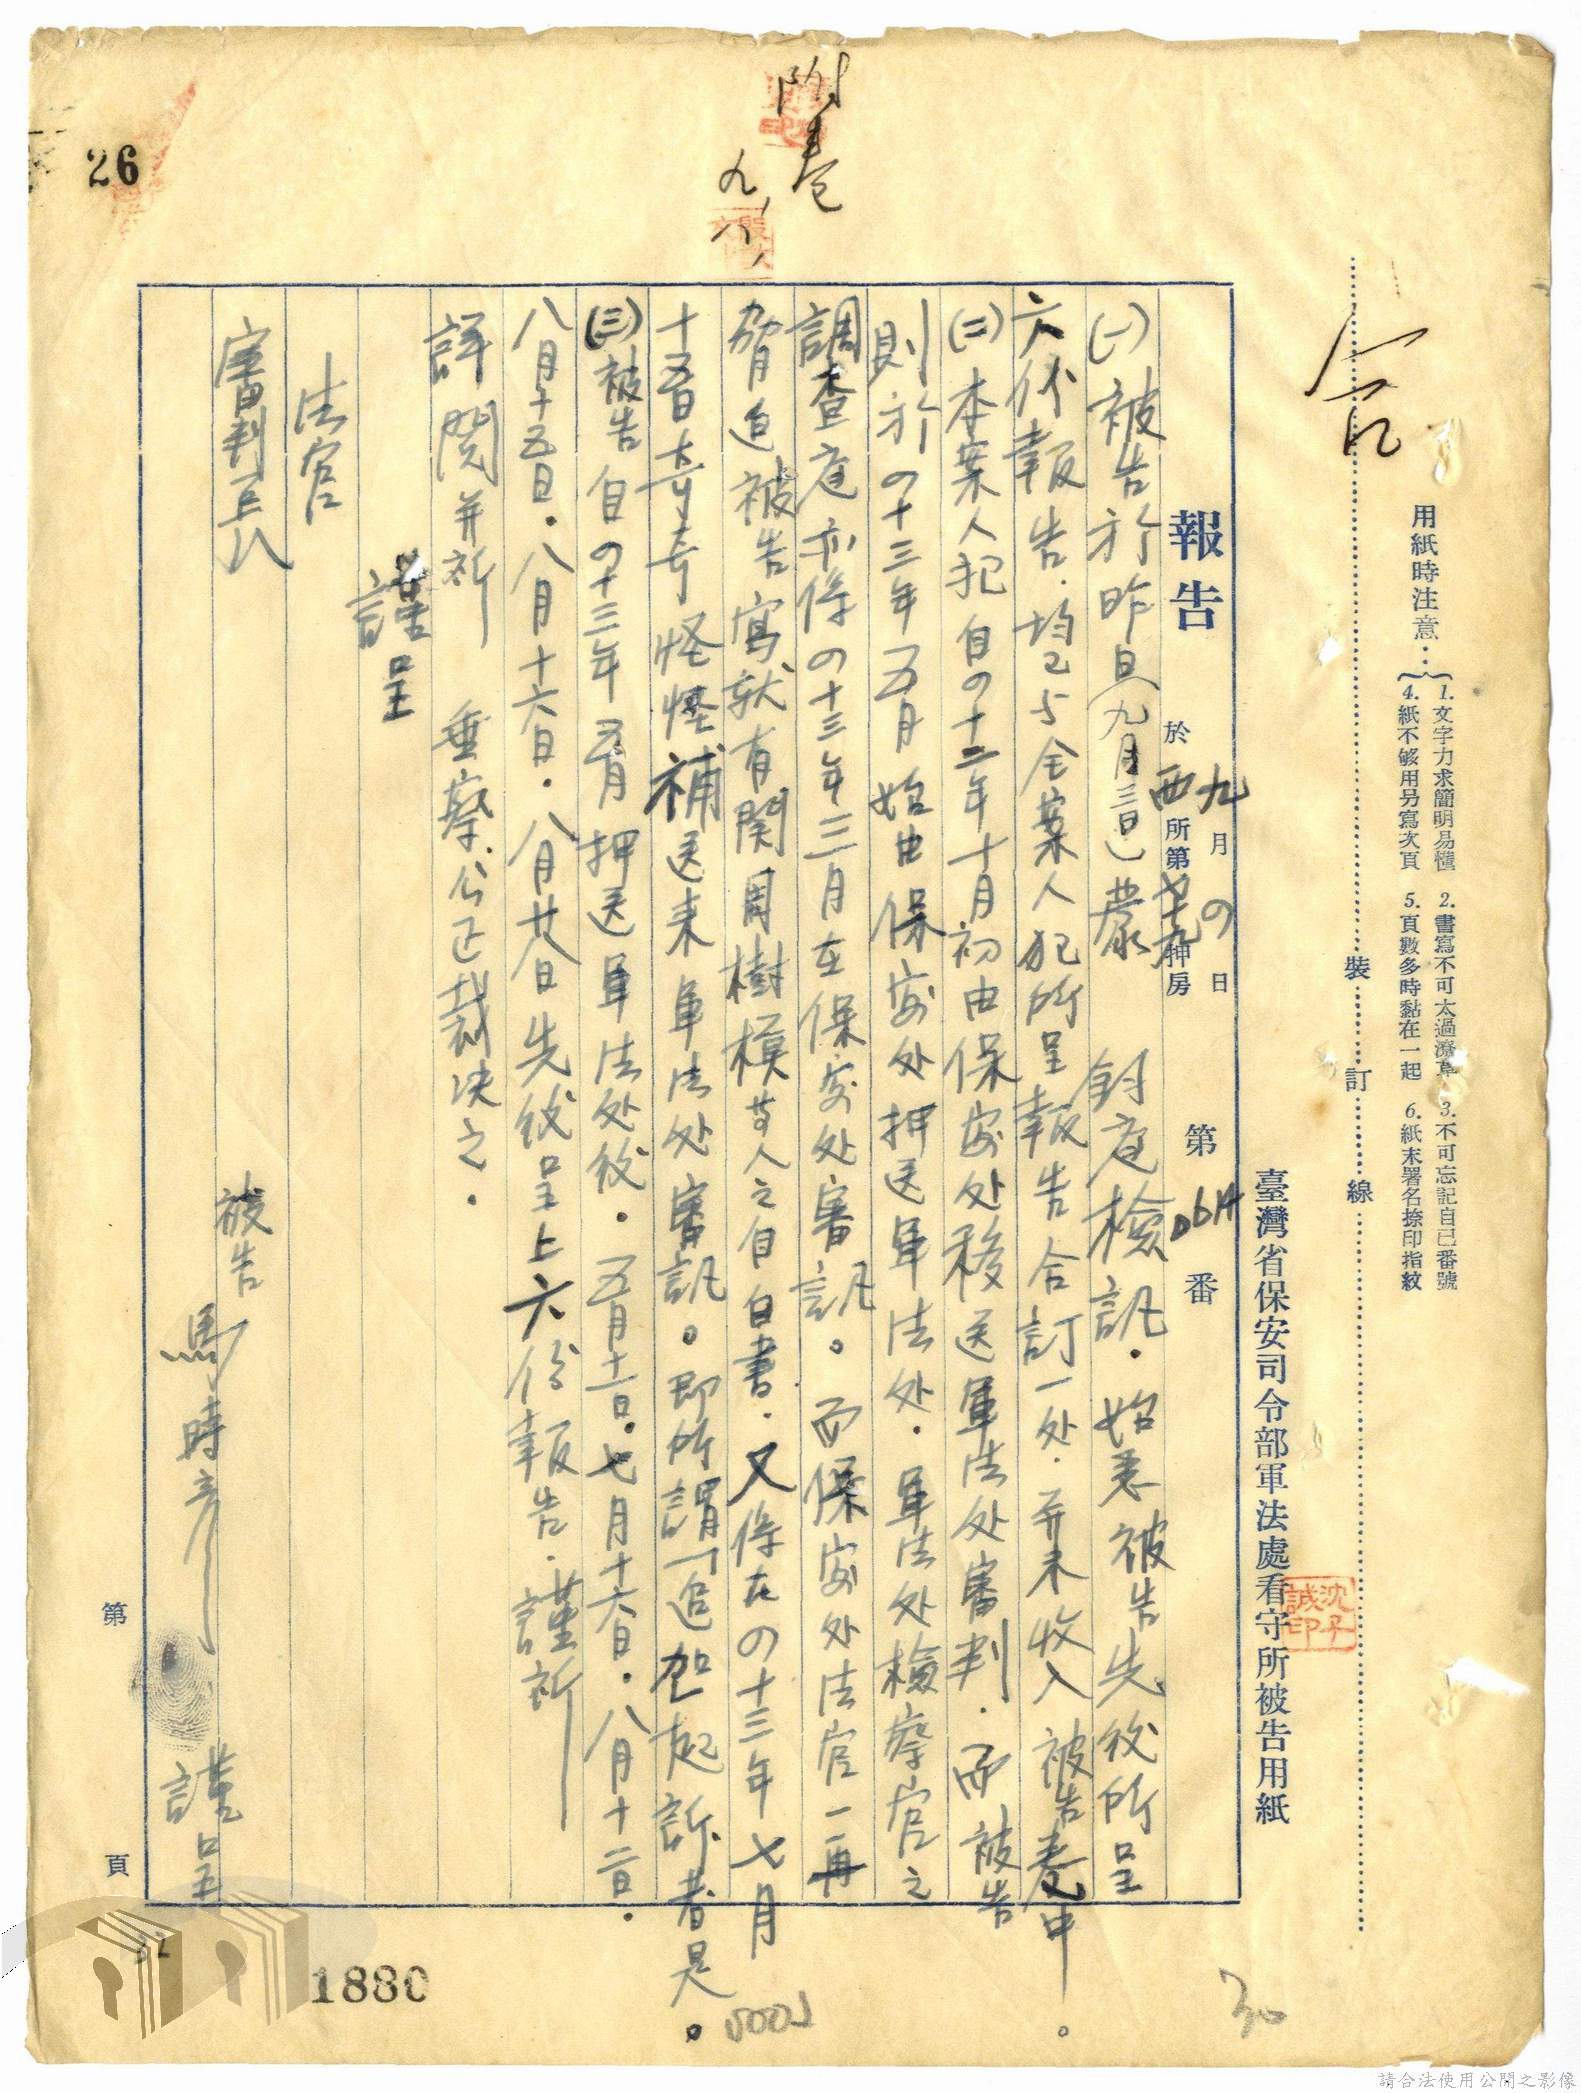 用紙時注意：
1.文字力求簡明易懂 2.書寫不可太過潦草 3.不可忘記自己番號
4.紙不够用另寫次頁 5.頁數多時黏在一起 6.紙末署名捺印指紋
裝 訂 線
臺灣省保安司令部軍法處看守所被告用紙
沈子誠印
九月四日 第 番
報告 於西所第 押房
(一)被告於昨日(九月三日)蒙 鈞庭檢訊．始悉被告先後所呈
六份報告．均已与全案人犯所呈報告合訂一处．并未收入被告卷中。
(二)本案人犯自四十二年十月初由保安处移送軍法处審判．而被告
則於四十三年五月始由保安处押送軍法处．軍法处檢察官之
調查庭亦係四十三年三月在保安处審訊。而保安处法官一再
脅迫被告寫就有関周樹模等人之自白書．又係在四十三年七月
十五日奇奇怪怪補送來軍法处審訊。即所謂「追加起訴者是。
(三)被告自四十三年五月押送軍法处後．五月十一日．七月十六日．八月十二日．
八月十五日．八月十六日．八月廿八日先後呈上六份報告．謹祈
詳閱并祈 垂察．公正裁决之．
謹呈
法官
審判長
被告 馬時彥 謹呈
第 頁
附卷
九、六、
26
1880
30
請合法使用公開之影像